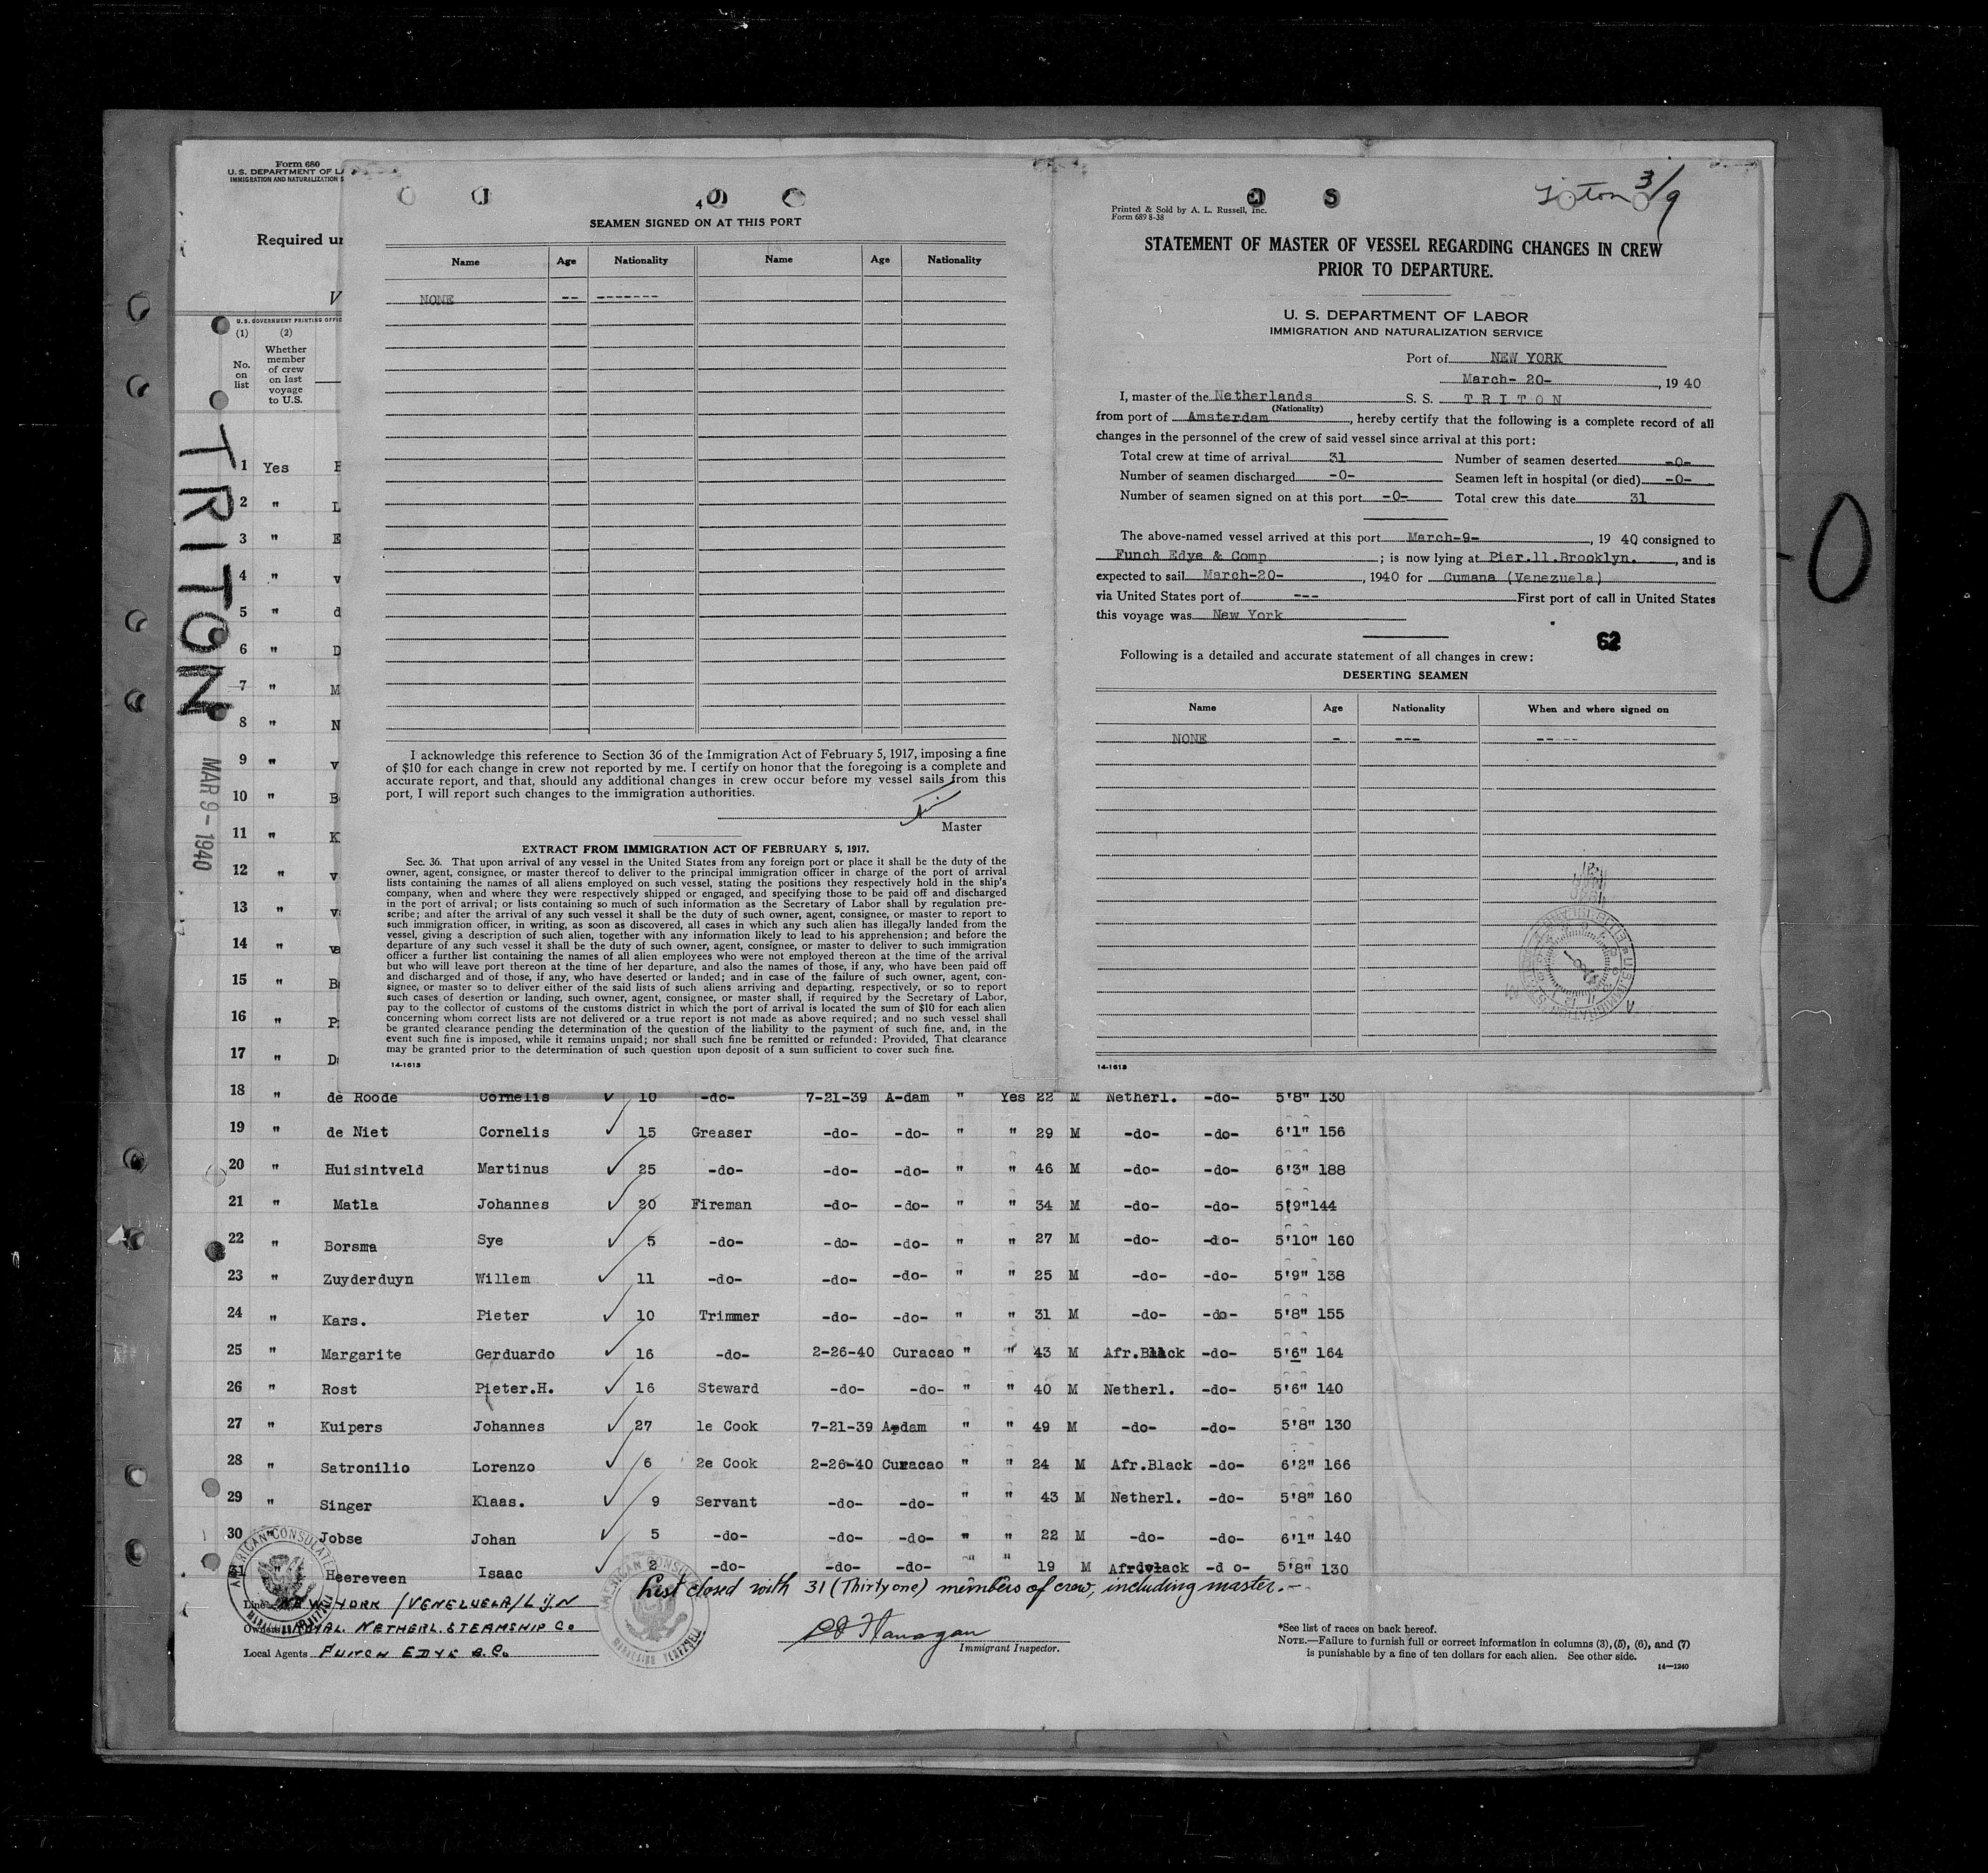 Form 680
U. S. DEPARTMENT OF
IMMIGRATION AND NATURALIZATION
Required
V
U. S. GOVERNMENT PRINTING
(1) (2)
No. on list
Whether member of crew on last voyage to U.S.
TRITON
MAR 9 - 1940
1 Yes
2 " L
3 " E
4 " v
5 " d
6 " D
7 " M
8 " N
9 " v
10 " B
11 " K
12 " v
13 " v
14 "
15 " B
16 " P
17 " D
4
SEAMEN SIGNED ON AT THIS PORT
Name Age Nationality Name Age Nationality
NONE -- -------
I acknowledge this reference to Section 36 of the Immigration Act of February 5, 1917, imposing a fine
of $10 for each change in crew not reported by me. I certify on honor that the foregoing is a complete and
accurate report, and that, should any additional changes in crew occur before my vessel sails from this
port, I will report such changes to the immigration authorities.
Master
EXTRACT FROM IMMIGRATION ACT OF FEBRUARY 5, 1917.
Sec. 36. That upon arrival of any vessel in the United States from any foreign port or place it shall be the duty of the
owner, agent, consignee, or master thereof to deliver to the principal immigration officer in charge of the port of arrival
lists containing the names of all aliens employed on such vessel, stating the positions they respectively hold in the ship's
company, when and where they were respectively shipped or engaged, and specifying those to be paid off and discharged
in the port of arrival; or lists containing so much of such information as the Secretary of Labor shall by regulation pre-
scribe; and after the arrival of any such vessel it shall be the duty of such owner, agent, consignee, or master to report to
such immigration officer, in writing, as soon as discovered, all cases in which any such alien has illegally landed from the
vessel, giving a description of such alien, together with any information likely to lead to his apprehension; and before the
departure of any such vessel it shall be the duty of such owner, agent, consignee, or master to deliver to such immigration
officer a further list containing the names of all alien employees who were not employed thereon at the time of the arrival
but who will leave port thereon at the time of her departure, and also the names of those, if any, who have been paid off
and discharged and of those, if any, who have deserted or landed; and in case of the failure of such owner, agent, con-
signee, or master so to deliver either of the said lists of such aliens arriving and departing, respectively, or so to report
such cases of desertion or landing, such owner, agent, consignee, or master shall, if required by the Secretary of Labor,
pay to the collector of customs of the customs district in which the port of arrival is located the sum of $10 for each alien
concerning whom correct lists are not delivered or a true report is not made as above required; and no such vessel shall
be granted clearance pending the determination of the question of the liability to the payment of such fine, and, in the
event such fine is imposed, while it remains unpaid; nor shall such fine be remitted or refunded: Provided, That clearance
may be granted prior to the determination of such question upon deposit of a sum sufficient to cover such fine.
14-1613
Triton 3/9
Printed & Sold by A. L. Russell, Inc.
Form 689 8-38
STATEMENT OF MASTER OF VESSEL REGARDING CHANGES IN CREW
PRIOR TO DEPARTURE.
U. S. DEPARTMENT OF LABOR
IMMIGRATION AND NATURALIZATION SERVICE
Port of NEW YORK
March- 20-, 19 40
I, master of the Netherlands S. S. T R I T O N
(Nationality)
from port of Amsterdam, hereby certify that the following is a complete record of all
changes in the personnel of the crew of said vessel since arrival at this port:
Total crew at time of arrival 31 Number of seamen deserted -0-
Number of seamen discharged -0- Seamen left in hospital (or died) -0-
Number of seamen signed on at this port -0- Total crew this date 31
The above-named vessel arrived at this port March-9-, 19 40 consigned to
Funch Edye & Comp; is now lying at Pier.11.Brooklyn., and is
expected to sail March-20-, 1940 for Cumana (Venezuela)
via United States port of --- First port of call in United States
this voyage was New York
62
Following is a detailed and accurate statement of all changes in crew:
DESERTING SEAMEN
Name Age Nationality When and where signed on
NONE - --- -----
14-1613
0
18 " de Roode Cornelis 10 -do- 7-21-39 A-dam " Yes 22 M Netherl. -do- 5'8" 130
19 " de Niet Cornelis 15 Greaser -do- -do- " " 29 M -do- -do- 6'1" 156
20 " Huisintveld Martinus 25 -do- -do- -do- " " 46 M -do- -do- 6'3" 188
21 " Matla Johannes 20 Fireman -do- -do- " " 34 M -do- -do- 5'9" 144
22 " Borsma Sye 5 -do- -do- -do- " " 27 M -do- -do- 5'10" 160
23 " Zuyderduyn Willem 11 -do- -do- -do- " " 25 M -do- -do- 5'9" 138
24 " Kars. Pieter 10 Trimmer -do- -do- " " 31 M -do- -do- 5'8" 155
25 " Margarite Gerduardo 16 -do- 2-26-40 Curacao " " 43 M Afr.Black -do- 5'6" 164
26 " Rost Pieter.H. 16 Steward -do- -do- " " 40 M Netherl. -do- 5'6" 140
27 " Kuipers Johannes 27 1e Cook 7-21-39 A-dam " " 49 M -do- -do- 5'8" 130
28 " Satronilio Lorenzo 6 2e Cook 2-26-40 Curacao " " 24 M Afr.Black -do- 6'2" 166
29 " Singer Klaas. 9 Servant -do- -do- " " 43 M Netherl. -do- 5'8" 160
30 " Jobse Johan 5 -do- -do- -do- " " 22 M -do- -do- 6'1" 140
31 " Heereveen Isaac 2 -do- -do- -do- " " 19 M -do- 5'8" 130
List closed with 31 (Thirty one) members of crew, including master.-
Line NEW-YORK /VENEZUELA/ LIJN
Owners ROYAL NETHERL. STEAMSHIP Co
Local Agents FUNCH EDYE & Co.
Flanagan
Immigrant Inspector.
AMERICAN CONSULATE
AMERICAN CONSULATE
*See list of races on back hereof.
NOTE.—Failure to furnish full or correct information in columns (3), (5), (6), and (7)
is punishable by a fine of ten dollars for each alien. See other side.
14—1240